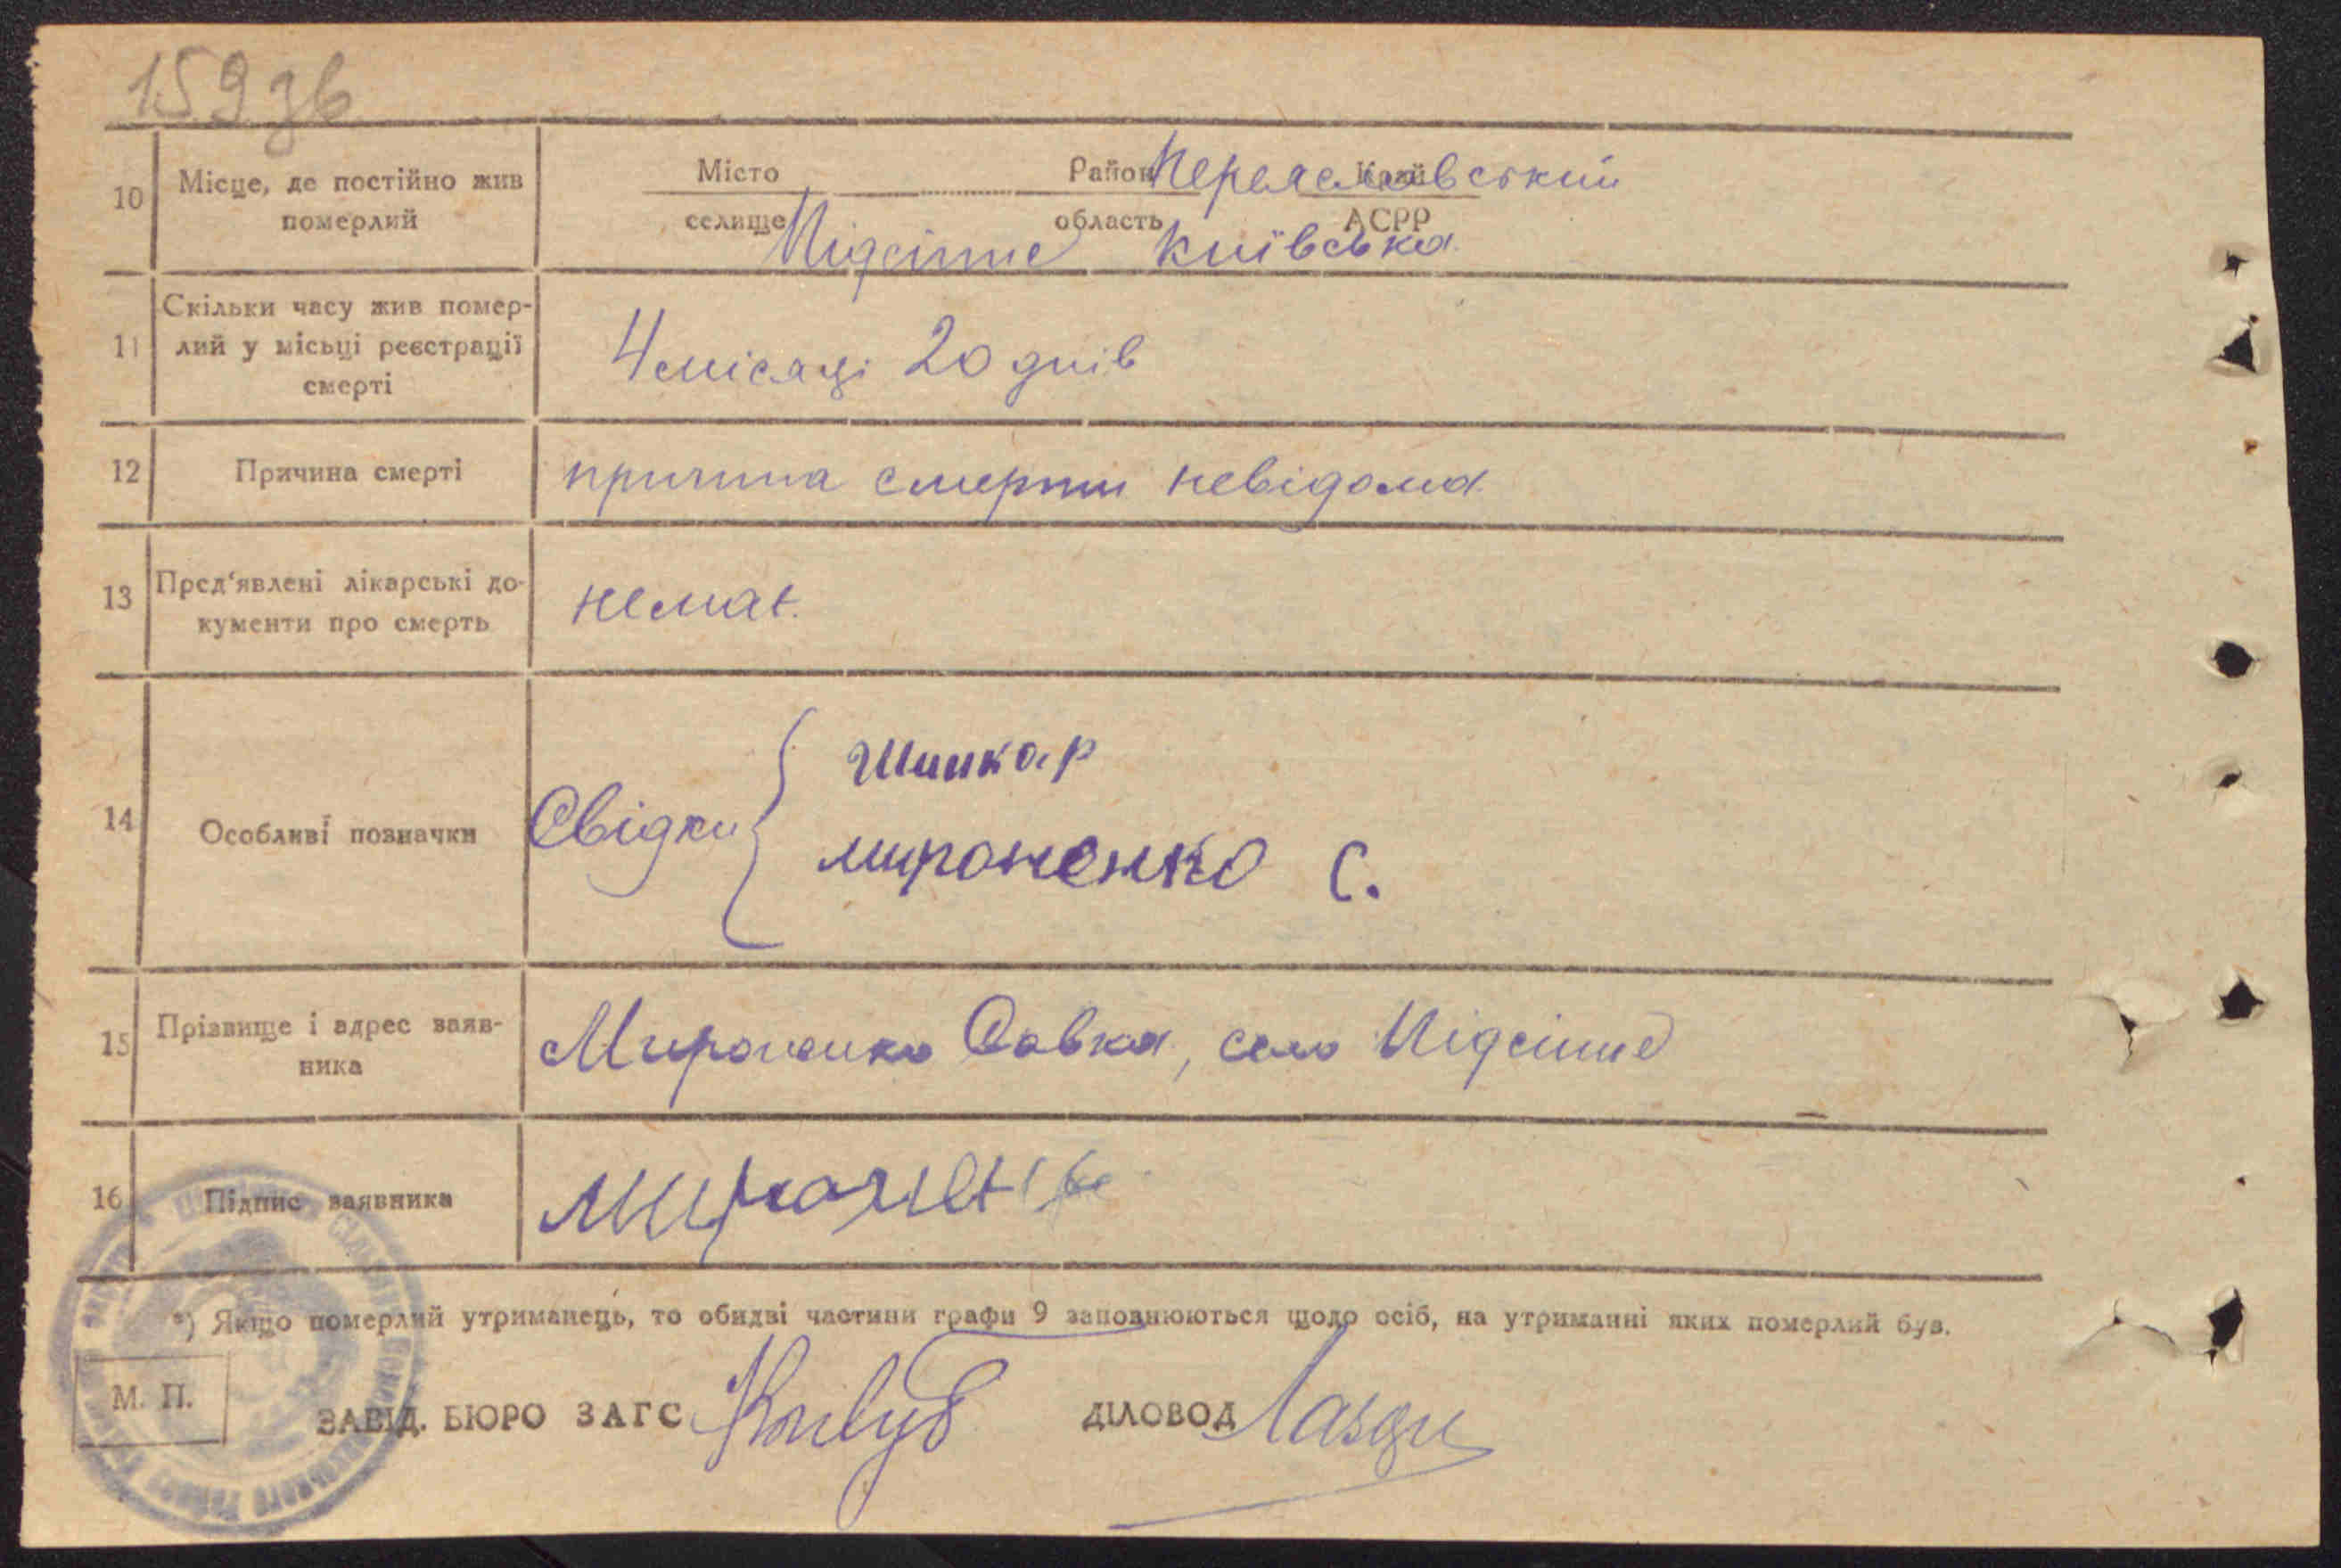 159 зв
10 Місце, де постійно жив померлий
Місто Район Переяславський Край
селище Підсінне область Київська АСРР
11 Скільки часу жив помер-
лий у місьці реєстрації
смерті
4 місяці 20 днів
12 Причина смерті причина смерти невідома
13 Пред'явлені лікарські до-
кументи про смерть
немає.
14 Особливі позначки Свідки
Шинкар
мироненко С.
15 Прізвище і адрес заяв-
ника
Мироненко Савка, село Підсінне
16 Підпис заявника
*) Якщо померлий утриманець, то обидві частини графи 9 заповнюються щодо осіб, на утриманні яких померлий був.
М. П.
ЗАВІД. БЮРО ЗАГС ДІЛОВОД